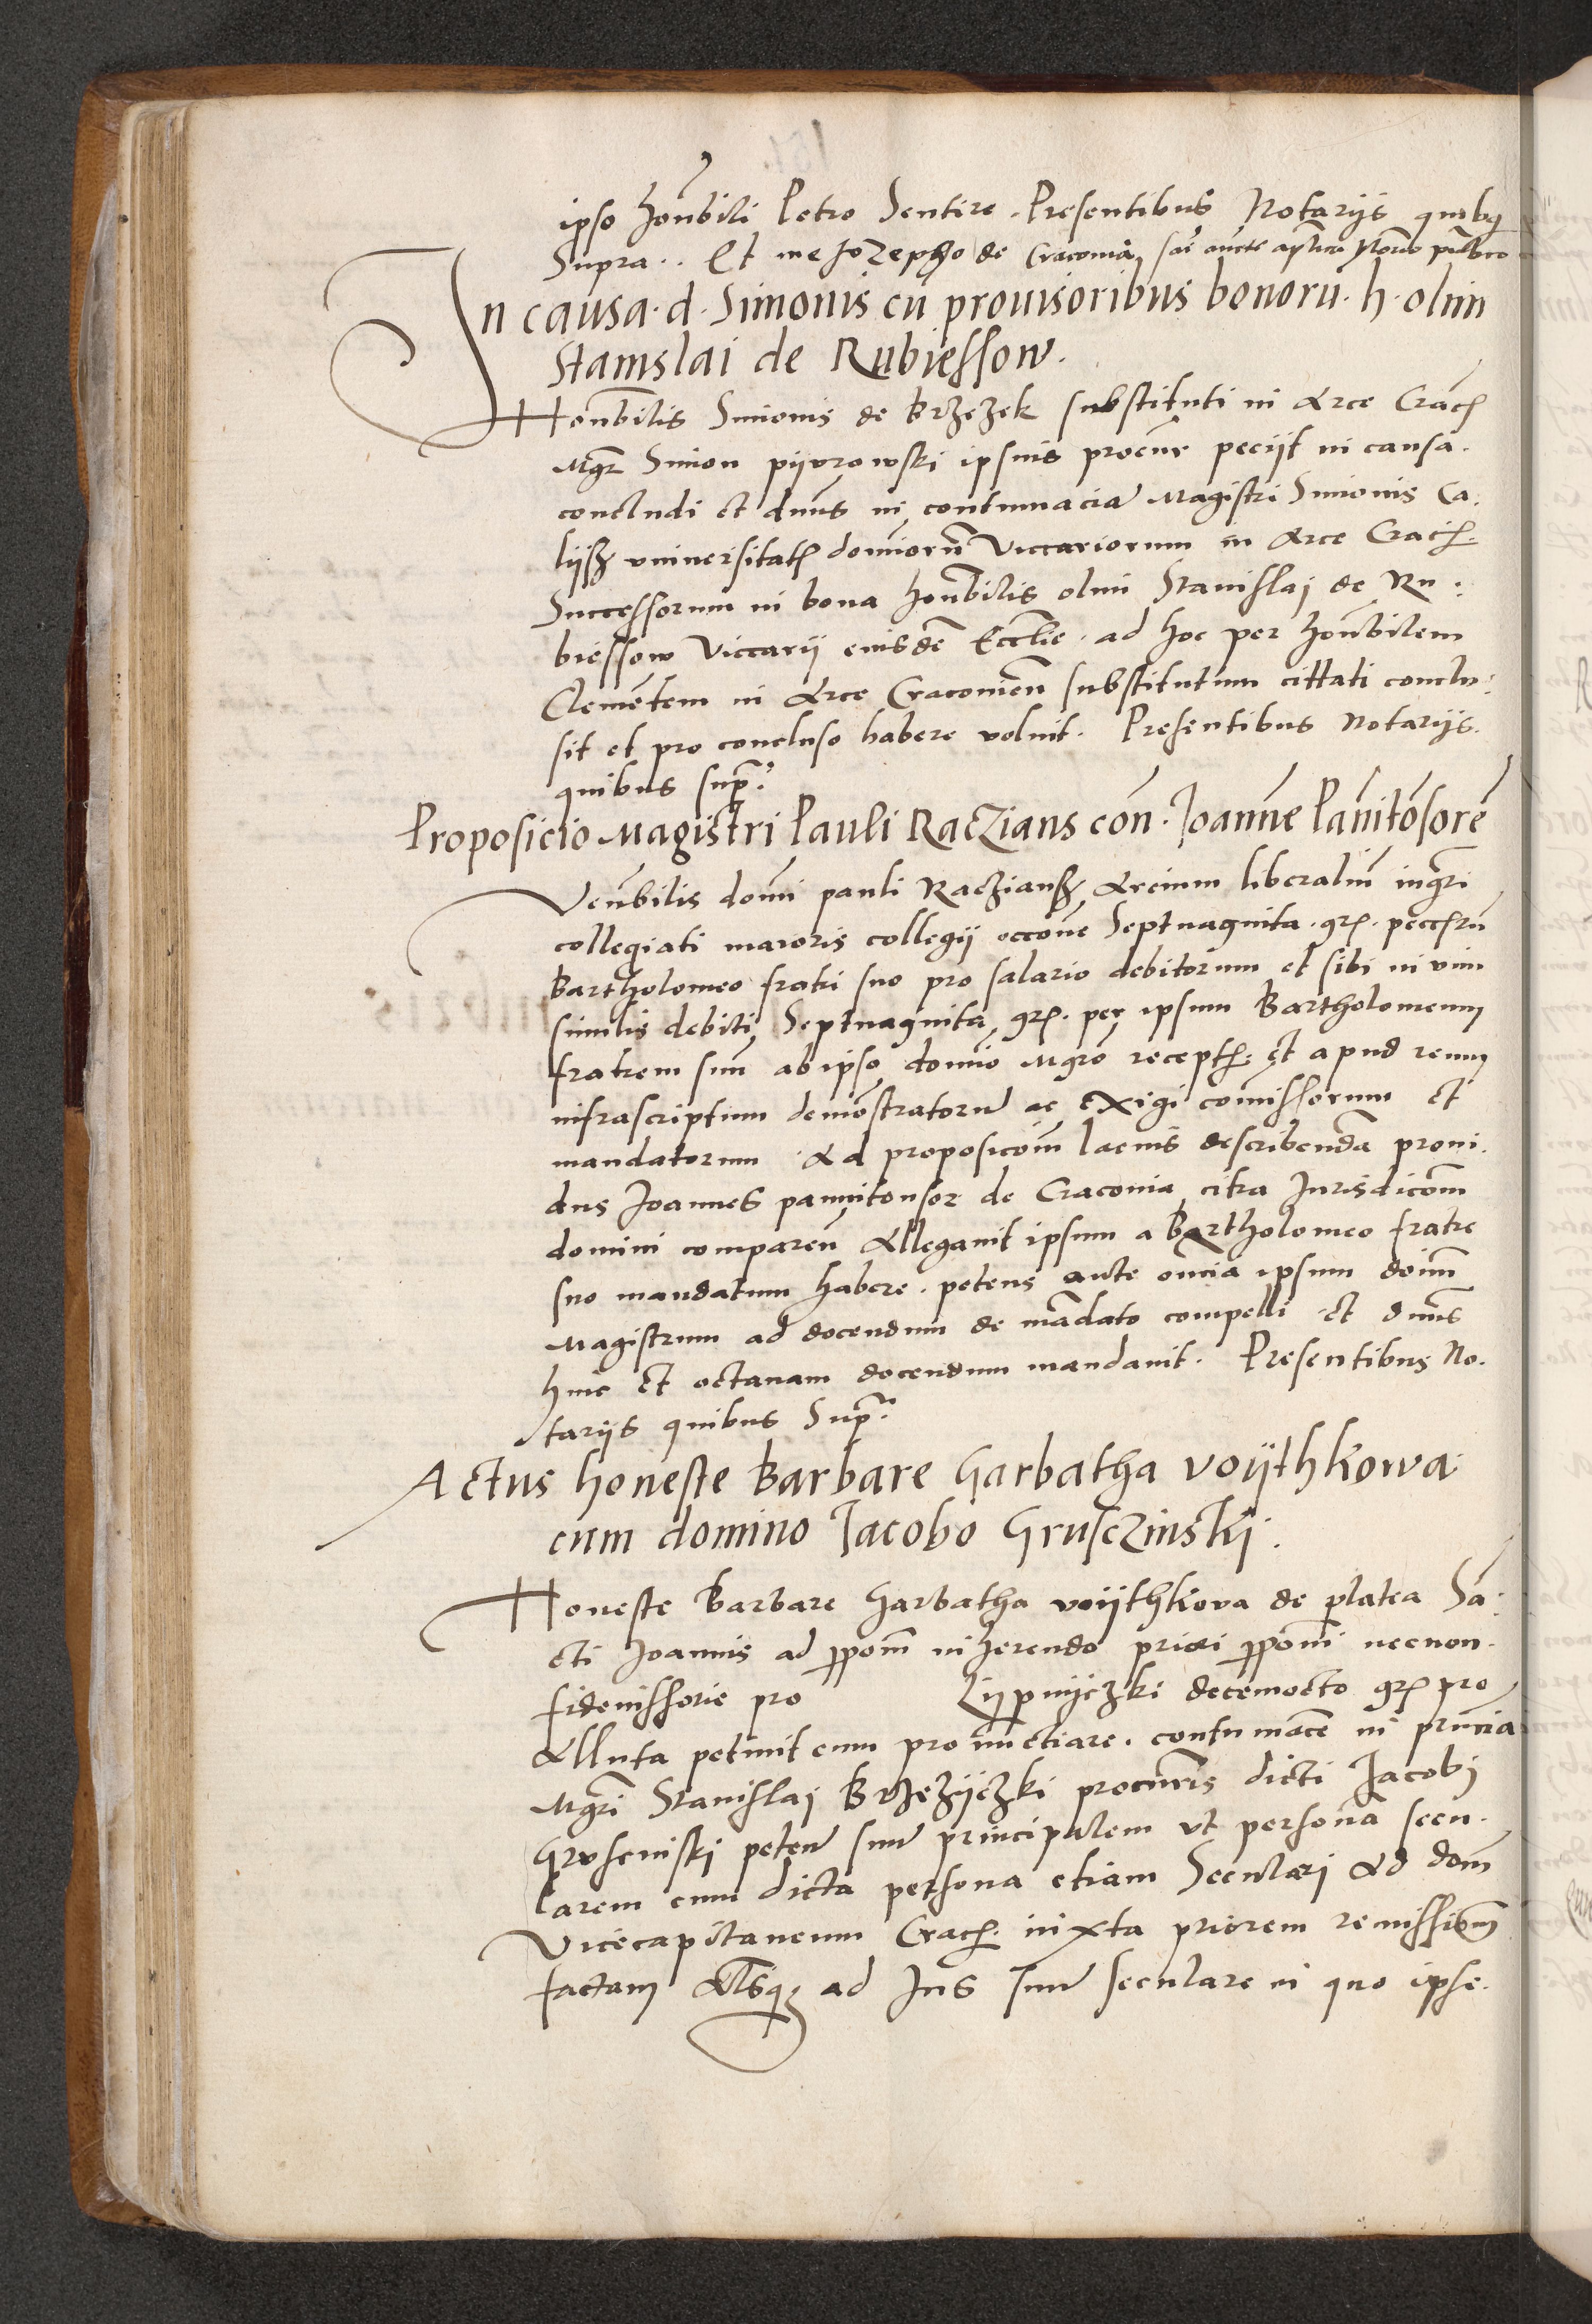 ipso honbili Petro Sentire . Presentibus Notarijs quibq
Supra . . Et me Jozepho de Craconia, sac aucte aplica Notario publico
In causa . d . Simonis cu prouisoribus bonoru . h . olim
Stanislai de Rubiessow .
Honbilis Simonis de Brzezek substituti in Arce Crac
Mgr Simon pijorowski ipsius procur pecijt in causa .
concludi et dnus in contumacia Magistri Simonis Ca .
lijsz uniuersitatis dominorum Viccariorum in Arce Crac .
Successorum in bona honbilis olim Stanislaj de Ru :
biessow Viccarij eiusde Ecclie . ad hoc per honbilem
Clementem in Arce Craconien substitutum cittati conclu :
sit et pro concluso habere voluit . Presentibus Notarijs .
quibus supra .
Proposicio Magistri Pauli Raczians con . Joanne Panitosore
Venbilis domi pauli Racziansz Arcium liberaliu mgri
collegiati maioris collegij occone Septuaginta . gr .
Bartholomeo fratri suo pro salario debitorum et sibi in vim
similis debiti Septuaginta gr . per ipsum Bartholomeum
fratrem suu ab ipso domio Mgro recept : et apud reum
infrascriptum demostratoru ac exigi comissorum et
mandatorum . Ad proposicom lacius describenda proui .
dus Joannes pannitonsor de Craconia citra Jurisdicom
domini comparen Allegauit ipsum a Bartholomeo fratre
suo mandatum habere . petens ante omia ipsum domu
Magistrum ad docendum de madato compelli et dnus
hinc et octauam docendum mandauit . Presentibus No .
tarijs quibus Supra .
Actus honeste Barbare Garbatha voijthkowa
cum domino Jacobo Grusczinskj .
Honeste Barbare Garbatha voijthkova de platea Sa :
cti Joannis ad ppom inherendo priori ppomi necnon .
fideiussorie pro Lijpnijczki decemocto gr pro
Alluta petiuit eum pronunctiare . contumace in pruncia
Mgri Stanislaj Brzezijczki procuris dicti Jacobj
Grusciniskj peten suu principalem ut persona secu .
larem cum dicta persona etiam Seculari Ad dom
Vicecapitaneum Crac . iuxta priorem remissiom
factam Aliasq ad Jus suu seculare in quo ipse .